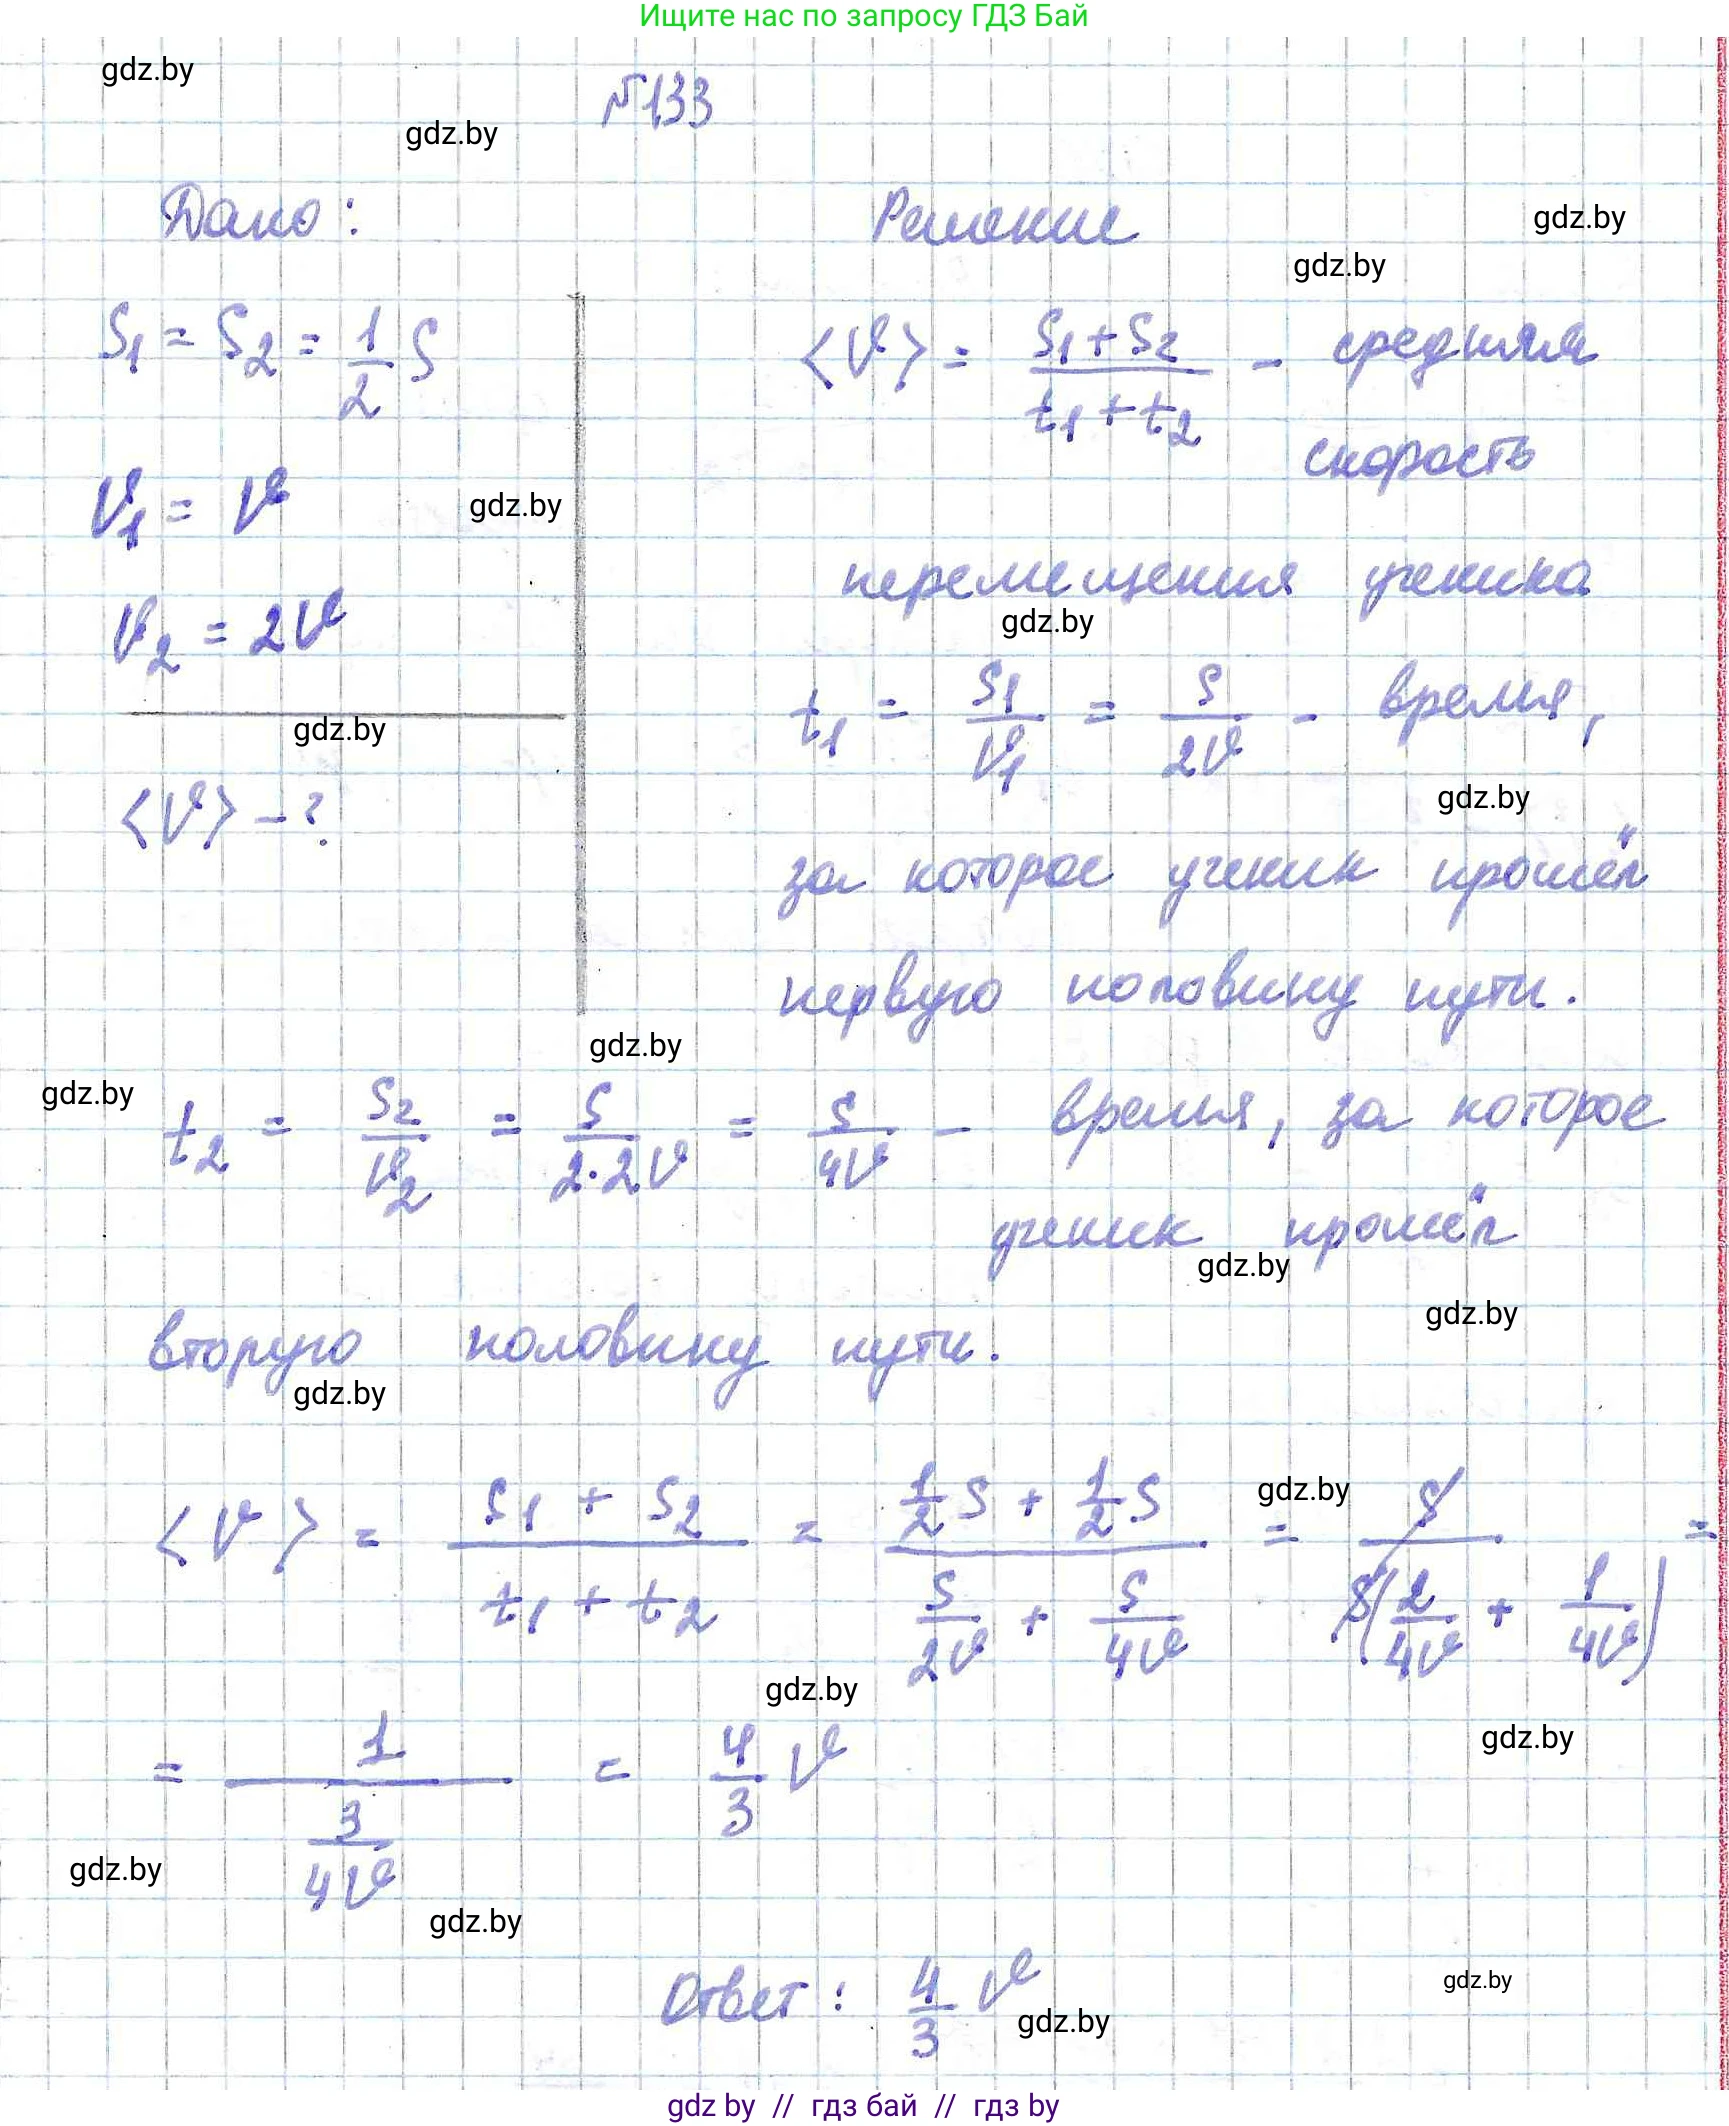 Ищите нас по запросу ГДЗ Бай
gdz.by
№133
gdz.by
Дано:
Решение
gdz.by
gdz.by
S₁ = S₂ = 1/2 S
⟨v⟩ = (S₁ + S₂)/(t₁ + t₂) - средняя
скорость
v₁ = v
gdz.by
перемещения ученика
v₂ = 2v
gdz.by
t₁ = S₁/v₁ = S/2v - время,
gdz.by
⟨v⟩ - ?
gdz.by
за которое ученик прошёл
первую половину пути.
gdz.by
gdz.by
t₂ = S₂/v₂ = S/(2·2v) = S/4v - время, за которое
ученик прошёл
gdz.by
gdz.by
вторую половину пути.
gdz.by
gdz.by
⟨v⟩ = (S₁ + S₂)/(t₁ + t₂) = (1/2 S + 1/2 S)/(S/2v + S/4v) = S/(S(2/4v + 1/4v)) =
gdz.by
gdz.by
= 1/(3/4v) = 4/3 v
gdz.by
gdz.by
Ответ: 4/3 v
gdz.by
gdz.by
gdz by // гдз бай // гдз by